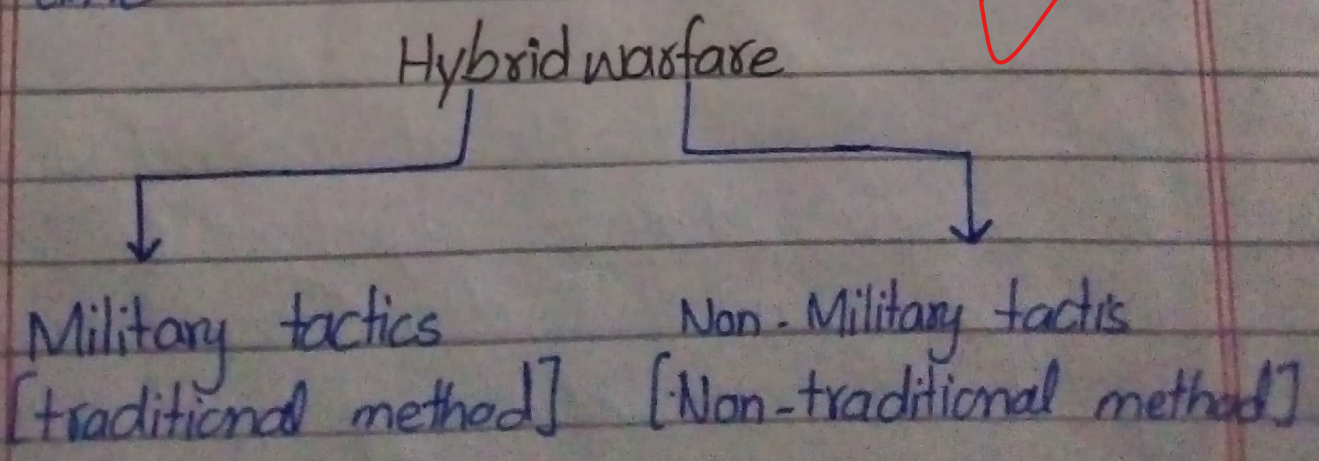 Hybrid warfare
Military tactics
[traditional method]
Non-Military tactis
[Non-traditional method]